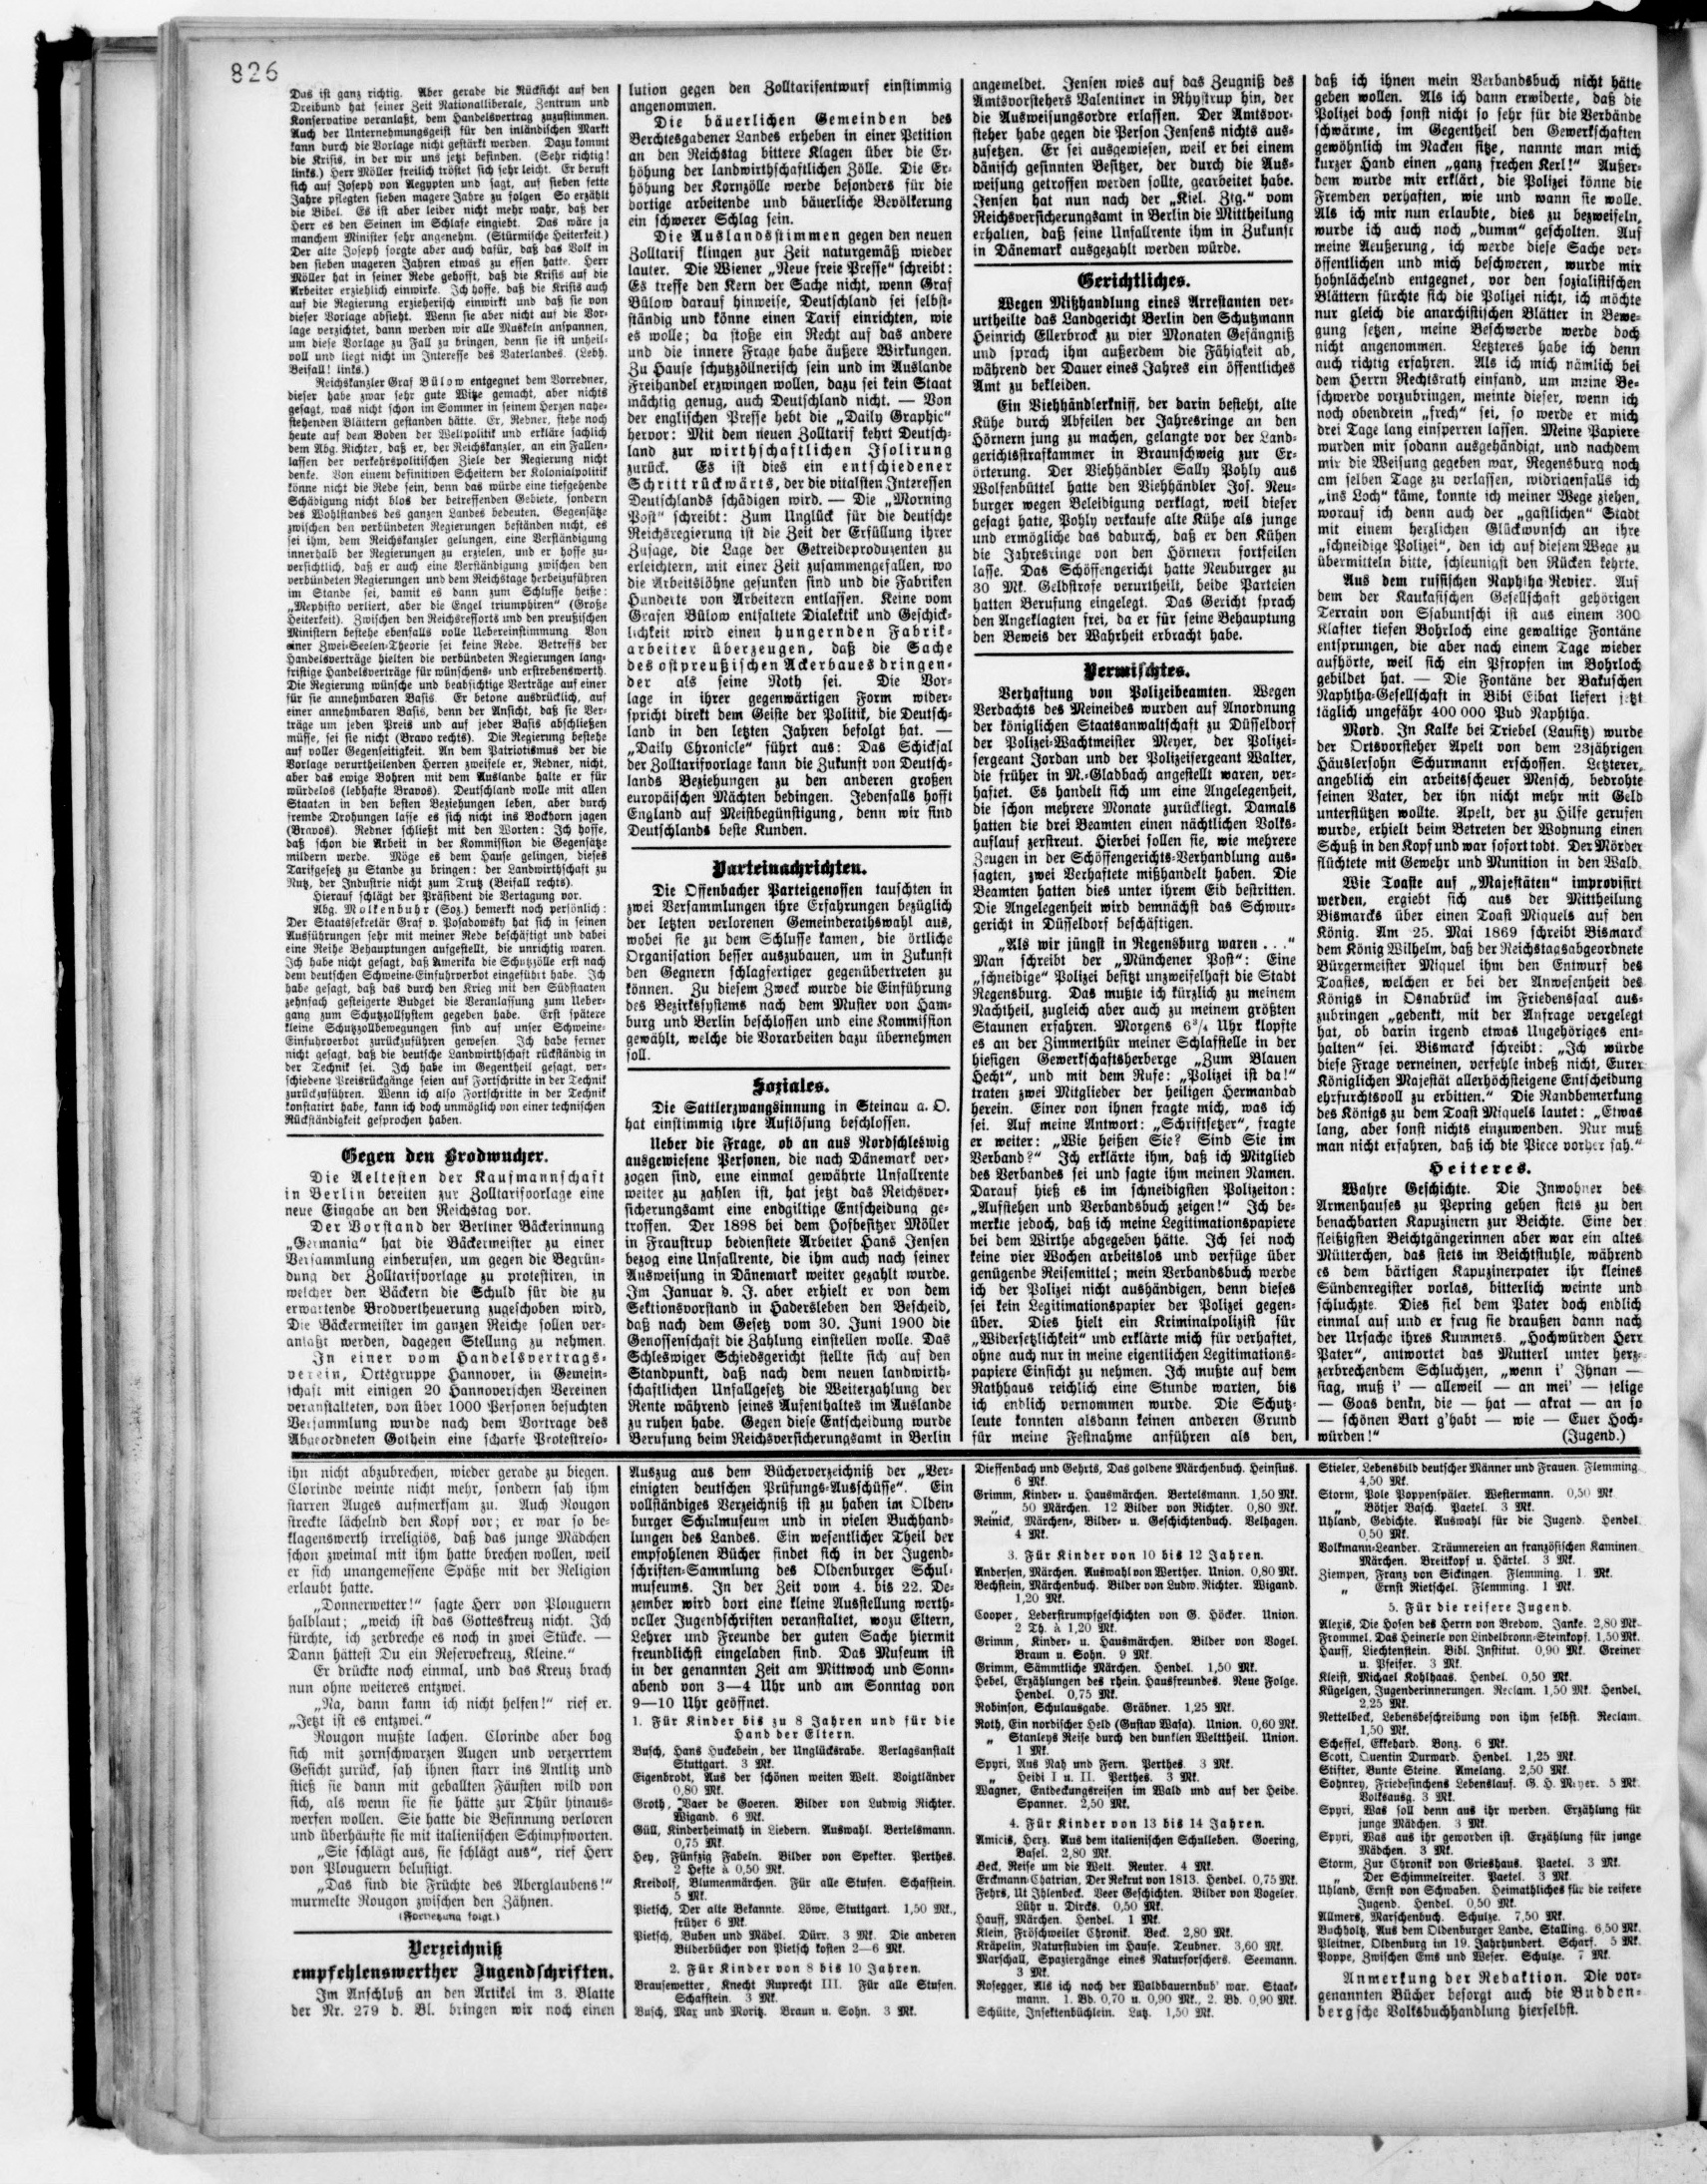 826
Das ist ganz richtig. Aber gerade die Rücksicht auf den
Dreibund hat seiner Zeit Nationalliberale, Zentrum und
Konservative veranlaßt, dem Handelsvertrag zuzustimmen.
Auch der Unternehmungsgeist für den inländischen Markt
kann durch die Vorlage nicht gestärkt werden. Dazu kommt
die Krisis, in der wir uns jetzt befinden. (Sehr richtig!
links.) Herr Möller freilich tröstet sich sehr leicht. Er beruft
sich auf Joseph von Aegypten und sagt, auf sieben fette
Jahre pflegten sieben magere Jahre zu folgen So erzählt
die Bibel. Es ist aber leider nicht mehr wahr, daß der
Herr es den Seinen im Schlafe eingiebt. Das wäre ja
manchem Minister sehr angenehm. (Stürmische Heiterkeit.)
Der alte Joseph sorgte aber auch dafür, daß das Volk in
den sieben mageren Jahren etwas zu essen hatte. Herr
Möller hat in seiner Rede gehofft, daß die Krisis auf die
Arbeiter erziehlich einwirke. Ich hoffe, daß die Krisis auch
auf die Regierung erzieherisch einwirkt und daß sie von
dieser Vorlage absieht. Wenn sie aber nicht auf die Vor-
lage verzichtet, dann werden wir alle Muskeln anspannen,
um diese Vorlage zu Fall zu bringen, denn sie ist unheil-
voll und liegt nicht im Interesse des Vaterlandes. (Lebh.
Beifall! links.)
Reichskanzler Graf Bülow entgegnet dem Vorredner,
dieser habe zwar sehr gute Witze gemacht, aber nichts
gesagt, was nicht schon im Sommer in seinem Herzen nahe-
stehenden Blättern gestanden hätte. Er, Redner, stehe noch
heute auf dem Boden der Weltpolitik und erkläre sachlich
dem Abg. Richter, daß er, der Reichskanzler, an ein Fallen-
lassen der verkehrspolitischen Ziele der Regierung nicht
denke. Von einem definitiven Scheitern der Kolonialpolitik
könne nicht die Rede sein, denn das würde eine tiefgehende
Schädigung nicht blos der betreffenden Gebiete, sondern
des Wohlstandes des ganzen Landes bedeuten. Gegensätze
zwischen den verbündeten Regierungen beständen nicht, es
sei ihm, dem Reichskanzler gelungen, eine Verständigung
innerhalb der Regierungen zu erzielen, und er hoffe zu-
versichtlich, daß er auch eine Verständigung zwischen den
verbündeten Regierungen und dem Reichstage herbeizuführen
im Stande sei, damit es dann zum Schlusse heiße:
„Mephisto verliert, aber die Engel triumphiren“ (Große
Heiterkeit). Zwischen den Reichsressorts und den preußischen
Ministern bestehe ebenfalls volle Uebereinstimmung. Von
einer Zwei-Seelen-Theorie sei keine Rede. Betreffs der
Handelsverträge hielten die verbündeten Regierungen lang-
fristige Handelsverträge für wünschens- und erstrebenswerth.
Die Regierung wünsche und beabsichtige Verträge auf einer
für sie annehmbaren Basis. Er betone ausdrücklich, auf
einer annehmbaren Basis, denn der Ansicht, daß sie Ver-
träge um jeden Preis und auf jeder Basis abschließen
müsse, sei sie nicht (Bravo rechts). Die Regierung bestehe
auf voller Gegenseitigkeit. An dem Patriotismus der die
Vorlage verurtheilenden Herren zweifele er, Redner, nicht,
aber das ewige Bohren mit dem Auslande halte er für
würdelos (lebhafte Bravos). Deutschland wolle mit allen
Staaten in den besten Beziehungen leben, aber durch
fremde Drohungen lasse es sich nicht ins Bockhorn jagen
(Bravos). Redner schließt mit den Worten: Ich hoffe,
daß schon die Arbeit in der Kommission die Gegensätze
mildern werde. Möge es dem Hause gelingen, dieses
Tarifgesetz zu Stande zu bringen: der Landwirthschaft zu
Nutz, der Industrie nicht zum Trutz (Beifall rechts).
Hierauf schlägt der Präsident die Vertagung vor.
Abg. Molkenbuhr (Soz.) bemerkt noch persönlich:
Der Staatssekretär Graf v. Posadowsky hat sich in seinen
Ausführungen sehr mit meiner Rede beschäftigt und dabei
eine Reihe Behauptungen aufgestellt, die unrichtig waren.
Ich habe nicht gesagt, daß Amerika die Schutzzölle erst nach
dem deutschen Schweine-Einfuhrverbot eingeführt habe. Ich
habe gesagt, daß das durch den Krieg mit den Südstaaten
zehnfach gesteigerte Budget die Veranlassung zum Ueber-
gang zum Schutzzollsystem gegeben habe. Erst spätere
kleine Schutzzollbewegungen sind auf unser Schweine-
Einfuhrverbot zurückzuführen gewesen. Ich habe ferner
nicht gesagt, daß die deutsche Landwirthschaft rückständig in
der Technik sei. Ich habe im Gegentheil gesagt, ver-
schiedene Preisrückgänge seien auf Fortschritte in der Technik
zurückzuführen. Wenn ich also Fortschritte in der Technik
konstatirt habe, kann ich doch unmöglich von einer technischen
Rückständigkeit gesprochen haben.
Gegen den Brodwucher.
Die Aeltesten der Kaufmannschaft
in Berlin bereiten zur Zolltarifvorlage eine
neue Eingabe an den Reichstag vor.
Der Vorstand der Berliner Bäckerinnung
„Germania“ hat die Bäckermeister zu einer
Versammlung einberufen, um gegen die Begrün-
dung der Zolltarifvorlage zu protestiren, in
welcher den Bäckern die Schuld für die zu
erwartende Brodvertheuerung zugeschoben wird,
Die Bäckermeister im ganzen Reiche sollen ver-
anlaßt werden, dagegen Stellung zu nehmen.
In einer vom Handelsvertrags-
verein, Ortsgruppe Hannover, in Gemein-
schaft mit einigen 20 Hannoverschen Vereinen
veranstalteten, von über 1000 Personen besuchten
Versammlung wurde nach dem Vortrage des
Abgeordneten Gothein eine scharfe Protestreso-
lution gegen den Zolltarifentwurf einstimmig
angenommen.
Die bäuerlichen Gemeinden des
Berchtesgadener Landes erheben in einer Petition
an den Reichstag bittere Klagen über die Er-
höhung der landwirthschaftlichen Zölle. Die Er-
höhung der Kornzölle werde besonders für die
dortige arbeitende und bäuerliche Bevölkerung
ein schwerer Schlag sein.
Die Auslandsstimmen gegen den neuen
Zolltarif klingen zur Zeit naturgemäß wieder
lauter. Die Wiener „Neue freie Presse“ schreibt:
Es treffe den Kern der Sache nicht, wenn Graf
Bülow darauf hinweise, Deutschland sei selbst-
ständig und könne einen Tarif einrichten, wie
es wolle; da stoße ein Recht auf das andere
und die innere Frage habe äußere Wirkungen.
Zu Hause schutzzöllnerisch sein und im Auslande
Freihandel erzwingen wollen, dazu sei kein Staat
mächtig genug, auch Deutschland nicht. — Von
der englischen Presse hebt die „Daily Graphic“
hervor: Mit dem neuen Zolltarif kehrt Deutsch-
land zur wirthschaftlichen Isolirung
zurück. Es ist dies ein entschiedener
Schritt rückwärts, der die vitalsten Interessen
Deutschlands schädigen wird. — Die „Morning
Post“ schreibt: Zum Unglück für die deutsche
Reichsregierung ist die Zeit der Erfüllung ihrer
Zusage, die Lage der Getreideproduzenten zu
erleichtern, mit einer Zeit zusammengefallen, wo
die Arbeitslöhne gesunken sind und die Fabriken
Hunderte von Arbeitern entlassen. Keine vom
Grafen Bülow entfaltete Dialektik und Geschick-
lichkeit wird einen hungernden Fabrik-
arbeiter überzeugen, daß die Sache
des ostpreußischen Ackerbaues dringen-
der als seine Noth sei. Die Vor-
lage in ihrer gegenwärtigen Form wider-
spricht direkt dem Geiste der Politik, die Deutsch-
land in den letzten Jahren befolgt hat. —
„Daily Chronicle“ führt aus: Das Schicksal
der Zolltarifvorlage kann die Zukunft von Deutsch-
lands Beziehungen zu den anderen großen
europäischen Mächten bedingen. Jedenfalls hofft
England auf Meistbegünstigung, denn wir sind
Deutschlands beste Kunden.
Parteinachrichten.
Die Offenbacher Parteigenossen tauschten in
zwei Versammlungen ihre Erfahrungen bezüglich
der letzten verlorenen Gemeinderathswahl aus,
wobei sie zu dem Schlusse kamen, die örtliche
Organisation besser auszubauen, um in Zukunft
den Gegnern schlagfertiger gegenübertreten zu
können. Zu diesem Zweck wurde die Einführung
des Bezirkssystems nach dem Muster von Ham-
burg und Berlin beschlossen und eine Kommission
gewählt, welche die Vorarbeiten dazu übernehmen
soll.
Soziales.
Die Sattlerzwangsinnung in Steinau a. O.
hat einstimmig ihre Auflösung beschlossen.
Ueber die Frage, ob an aus Nordschleswig
ausgewiesene Personen, die nach Dänemark ver-
zogen sind, eine einmal gewährte Unfallrente
weiter zu zahlen ist, hat jetzt das Reichsver-
sicherungsamt eine endgiltige Entscheidung ge-
troffen. Der 1898 bei dem Hofbesitzer Möller
in Fraustrup bedienstete Arbeiter Hans Jensen
bezog eine Unfallrente, die ihm auch nach seiner
Ausweisung in Dänemark weiter gezahlt wurde.
Im Januar d. J. aber erhielt er von dem
Sektionsvorstand in Hadersleben den Bescheid,
daß nach dem Gesetz vom 30. Juni 1900 die
Genossenschaft die Zahlung einstellen wolle. Das
Schleswiger Schiedsgericht stellte sich auf den
Standpunkt, daß nach dem neuen landwirth-
schaftlichen Unfallgesetz die Weiterzahlung der
Rente während seines Aufenthaltes im Auslande
zu ruhen habe. Gegen diese Entscheidung wurde
Berufung beim Reichsversicherungsamt in Berlin
angemeldet. Jensen wies auf das Zeugniß des
Amtsvorstehers Valentiner in Rhystrup hin, der
die Ausweisungsordre erlassen. Der Amtsvor-
steher habe gegen die Person Jensens nichts aus-
zusetzen. Er sei ausgewiesen, weil er bei einem
dänisch gesinnten Besitzer, der durch die Aus-
weisung getroffen werden sollte, gearbeitet habe.
Jensen hat nun nach der „Kiel. Ztg.“ vom
Reichsversicherungsamt in Berlin die Mittheilung
erhalten, daß seine Unfallrente ihm in Zukunft
in Dänemark ausgezahlt werden würde.
Gerichtliches.
Wegen Mißhandlung eines Arrestanten ver-
urtheilte das Landgericht Berlin den Schutzmann
Heinrich Ellerbrock zu vier Monaten Gefängniß
und sprach ihm außerdem die Fähigkeit ab,
während der Dauer eines Jahres ein öffentliches
Amt zu bekleiden.
Ein Viehhändlerkniff, der darin besteht, alte
Kühe durch Abfeilen der Jahresringe an den
Hörnern jung zu machen, gelangte vor der Land-
gerichtsstrafkammer in Braunschweig zur Er-
örterung. Der Viehhändler Sally Pohly aus
Wolfenbüttel hatte den Viehhändler Jos. Neu-
burger wegen Beleidigung verklagt, weil dieser
gesagt hatte, Pohly verkaufe alte Kühe als junge
und ermögliche das dadurch, daß er den Kühen
die Jahresringe von den Hörnern fortfeilen
lasse. Das Schöffengericht hatte Neuburger zu
30 Mk. Geldstrafe verurtheilt, beide Parteien
hatten Berufung eingelegt. Das Gericht sprach
den Angeklagten frei, da er für seine Behauptung
den Beweis der Wahrheit erbracht habe.
Vermischtes.
Verhaftung von Polizeibeamten. Wegen
Verdachts des Meineides wurden auf Anordnung
der königlichen Staatsanwaltschaft zu Düsseldorf
der Polizei-Wachtmeister Meyer, der Polizei-
sergeant Jordan und der Polizeisergeant Walter,
die früher in M.-Gladbach angestellt waren, ver-
haftet. Es handelt sich um eine Angelegenheit,
die schon mehrere Monate zurückliegt. Damals
hatten die drei Beamten einen nächtlichen Volks-
auflauf zerstreut. Hierbei sollen sie, wie mehrere
Zeugen in der Schöffengerichts-Verhandlung aus-
sagten, zwei Verhaftete mißhandelt haben. Die
Beamten hatten dies unter ihrem Eid bestritten.
Die Angelegenheit wird demnächst das Schwur-
gericht in Düsseldorf beschäftigen.
„Als wir jüngst in Regensburg waren . . .“
Man schreibt der „Münchener Post“: Eine
„schneidige“ Polizei besitzt unzweifelhaft die Stadt
Regensburg. Das mußte ich kürzlich zu meinem
Nachtheil, zugleich aber auch zu meinem größten
Staunen erfahren. Morgens 6¾ Uhr klopfte
es an der Zimmerthür meiner Schlafstelle in der
hiesigen Gewerkschaftsherberge „Zum Blauen
Hecht“, und mit dem Rufe: „Polizei ist da!“
traten zwei Mitglieder der heiligen Hermandad
herein. Einer von ihnen fragte mich, was ich
sei. Auf meine Antwort: „Schriftsetzer“, fragte
er weiter: „Wie heißen Sie? Sind Sie im
Verband?“ Ich erklärte ihm, daß ich Mitglied
des Verbandes sei und sagte ihm meinen Namen.
Darauf hieß es im schneidigsten Polizeiton:
„Aufstehen und Verbandsbuch zeigen!“ Ich be-
merkte jedoch, daß ich meine Legitimationspapiere
bei dem Wirthe abgegeben hätte. Ich sei noch
keine vier Wochen arbeitslos und verfüge über
genügende Reisemittel; mein Verbandsbuch werde
ich der Polizei nicht aushändigen, denn dieses
sei kein Legitimationspapier der Polizei gegen-
über. Dies hielt ein Kriminalpolizist für
„Widersetzlichkeit“ und erklärte mich für verhaftet,
ohne auch nur in meine eigentlichen Legitimations-
papiere Einsicht zu nehmen. Ich mußte auf dem
Rathhaus reichlich eine Stunde warten, bis
ich endlich vernommen wurde. Die Schutz-
leute konnten alsdann keinen anderen Grund
für meine Festnahme anführen als den,
daß ich ihnen mein Verbandsbuch nicht hätte
geben wollen. Als ich dann erwiderte, daß die
Polizei doch sonst nicht so sehr für die Verbände
schwärme, im Gegentheil den Gewerkschaften
gewöhnlich im Nacken sitze, nannte man mich
kurzer Hand einen „ganz frechen Kerl!“ Außer-
dem wurde mir erklärt, die Polizei könne die
Fremden verhaften, wie und wann sie wolle.
Als ich mir nun erlaubte, dies zu bezweifeln,
wurde ich auch noch „dumm“ gescholten. Auf
meine Aeußerung, ich werde diese Sache ver-
öffentlichen und mich beschweren, wurde mir
hohnlächelnd entgegnet, vor den sozialistischen
Blättern fürchte sich die Polizei nicht, ich möchte
nur gleich die anarchistischen Blätter in Bewe-
gung setzen, meine Beschwerde werde doch
nicht angenommen. Letzteres habe ich denn
auch richtig erfahren. Als ich mich nämlich bei
dem Herrn Rechtsrath einfand, um meine Be-
schwerde vorzubringen, meinte dieser, wenn ich
noch obendrein „frech“ sei, so werde er mich
drei Tage lang einsperren lassen. Meine Papiere
wurden mir sodann ausgehändigt, und nachdem
mir die Weisung gegeben war, Regensburg noch
am selben Tage zu verlassen, widrigenfalls ich
„ins Loch“ käme, konnte ich meiner Wege ziehen,
worauf ich denn auch der „gastlichen“ Stadt
mit einem herzlichen Glückwunsch an ihre
„schneidige Polizei“, den ich auf diesem Wege zu
übermitteln bitte, schleunigst den Rücken kehrte.
Aus dem russischen Naphtha-Revier. Auf
dem der Kaukasischen Gesellschaft gehörigen
Terrain von Ssabuntschi ist aus einem 300
Klafter tiefen Bohrloch eine gewaltige Fontäne
entsprungen, die aber nach einem Tage wieder
aufhörte, weil sich ein Pfropfen im Bohrloch
gebildet hat. — Die Fontäne der Bakuschen
Naphtha-Gesellschaft in Bibi Eibat liefert jetzt
täglich ungefähr 400 000 Pud Naphtha.
Mord. In Kalke bei Triebel (Lausitz) wurde
der Ortsvorsteher Apelt von dem 23jährigen
Häuslersohn Schurmann erschossen. Letzterer,
angeblich ein arbeitsscheuer Mensch, bedrohte
seinen Vater, der ihn nicht mehr mit Geld
unterstützen wollte. Apelt, der zu Hilfe gerufen
wurde, erhielt beim Betreten der Wohnung einen
Schuß in den Kopf und war sofort todt. Der Mörder
flüchtete mit Gewehr und Munition in den Wald.
Wie Toaste auf „Majestäten“ improvisirt
werden, ergiebt sich aus der Mittheilung
Bismarcks über einen Toast Miquels auf den
König. Am 25. Mai 1869 schreibt Bismarck
dem König Wilhelm, daß der Reichstagsabgeordnete
Bürgermeister Miquel ihm den Entwurf des
Toastes, welchen er bei der Anwesenheit des
Königs in Osnabrück im Friedenssaal aus-
zubringen „gedenkt, mit der Anfrage vergelegt
hat, ob darin irgend etwas Ungehöriges ent-
halten“ sei. Bismarck schreibt: „Ich würde
diese Frage verneinen, verfehle indeß nicht, Eurer
Königlichen Majestät allerhöchsteigene Entscheidung
ehrfurchtsvoll zu erbitten.“ Die Randbemerkung
des Königs zu dem Toast Miquels lautet: „Etwas
lang, aber sonst nichts einzuwenden. Nur muß
man nicht erfahren, daß ich die Piece vorher sah.“
Heiteres.
Wahre Geschichte. Die Inwohner des
Armenhauses zu Pepring gehen stets zu den
benachbarten Kapuzinern zur Beichte. Eine der
fleißigsten Beichtgängerinnen aber war ein altes
Mütterchen, das stets im Beichtstuhle, während
es dem bärtigen Kapuzinerpater ihr kleines
Sündenregister vorlas, bitterlich weinte und
schluchzte. Dies fiel dem Pater doch endlich
einmal auf und er frug sie draußen dann nach
der Ursache ihres Kummers. „Hochwürden Herr
Pater“, antwortet das Mutterl unter herz-
zerbrechendem Schluchzen, „wenn i' Ihnan —
siag, muß i' — alleweil — an mei' — selige
— Goas denkn, die — hat — akrat — an so
— schönen Bart g'habt — wie — Euer Hoch-
würden!“ (Jugend.)
ihn nicht abzubrechen, wieder gerade zu biegen.
Clorinde weinte nicht mehr, sondern sah ihm
starren Auges aufmerksam zu. Auch Rougon
streckte lächelnd den Kopf vor; er war so be-
klagenswerth irreligiös, daß das junge Mädchen
schon zweimal mit ihm hatte brechen wollen, weil
er sich unangemessene Späße mit der Religion
erlaubt hatte.
„Donnerwetter!“ sagte Herr von Plouguern
halblaut; „weich ist das Gotteskreuz nicht. Ich
fürchte, ich zerbreche es noch in zwei Stücke. —
Dann hättest Du ein Reservekreuz, Kleine.“
Er drückte noch einmal, und das Kreuz brach
nun ohne weiteres entzwei.
„Na, dann kann ich nicht helfen!“ rief er.
„Jetzt ist es entzwei.“
Rougon mußte lachen. Clorinde aber bog
sich mit zornschwarzen Augen und verzerrtem
Gesicht zurück, sah ihnen starr ins Antlitz und
stieß sie dann mit geballten Fäusten wild von
sich, als wenn sie sie hätte zur Thür hinaus-
werfen wollen. Sie hatte die Besinnung verloren
und überhäufte sie mit italienischen Schimpfworten.
„Sie schlägt aus, sie schlägt aus“, rief Herr
von Plouguern belustigt.
„Das sind die Früchte des Aberglaubens!“
murmelte Rougon zwischen den Zähnen.
(Fortsetzung folgt.)
Verzeichniß
empfehlenswerther Jugendschriften.
Im Anschluß an den Artikel im 3. Blatte
der Nr. 279 d. Bl. bringen wir noch einen
Auszug aus dem Bücherverzeichniß der „Ver-
einigten deutschen Prüfungs-Ausschüsse“. Ein
vollständiges Verzeichniß ist zu haben im Olden-
burger Schulmuseum und in vielen Buchhand-
lungen des Landes. Ein wesentlicher Theil der
empfohlenen Bücher findet sich in der Jugend-
schriften-Sammlung des Oldenburger Schul-
museums. In der Zeit vom 4. bis 22. De-
zember wird dort eine kleine Ausstellung werth-
voller Jugendschriften veranstaltet, wozu Eltern,
Lehrer und Freunde der guten Sache hiermit
freundlichst eingeladen sind. Das Museum ist
in der genannten Zeit am Mittwoch und Sonn-
abend von 3—4 Uhr und am Sonntag von
9—10 Uhr geöffnet.
1. Für Kinder bis zu 8 Jahren und für die
Hand der Eltern.
Busch, Hans Huckebein, der Unglücksrabe. Verlagsanstalt
Stuttgart. 3 Mk.
Eigenbrodt, Aus der schönen weiten Welt. Voigtländer
0,80 Mk.
Groth, Vaer de Goeren. Bilder von Ludwig Richter.
Wigand. 6 Mk.
Güll, Kinderheimath in Liedern. Auswahl. Bertelsmann.
0,75 Mk.
Hey, Fünfzig Fabeln. Bilder von Spekter. Perthes.
2 Hefte à 0,50 Mk.
Kreidolf, Blumenmärchen. Für alle Stufen. Schafstein.
5 Mk.
Pietsch, Der alte Bekannte. Löwe, Stuttgart. 1,50 Mk.,
früher 6 Mk.
Pietsch, Buben und Mädel. Dürr. 3 Mk. Die anderen
Bilderbücher von Pietsch kosten 2—6 Mk.
2. Für Kinder von 8 bis 10 Jahren.
Brausewetter, Knecht Ruprecht III. Für alle Stufen.
Schafstein. 3 Mk.
Busch, Max und Moritz. Braun u. Sohn. 3 Mk.
Dieffenbach und Gehrts, Das goldene Märchenbuch. Heinsius.
6 Mk.
Grimm, Kinder- u. Hausmärchen. Bertelsmann. 1,50 Mk.
„ 50 Märchen. 12 Bilder von Richter. 0,80 Mk.
Reinick, Märchen-, Bilder- u. Geschichtenbuch. Velhagen.
4 Mk.
3. Für Kinder von 10 bis 12 Jahren.
Andersen, Märchen. Auswahl von Werther. Union. 0,80 Mk.
Bechstein, Märchenbuch. Bilder von Ludw. Richter. Wigand.
1,20 Mk.
Cooper, Lederstrumpfgeschichten von G. Höcker. Union.
2 Th. à 1,20 Mk.
Grimm, Kinder- u. Hausmärchen. Bilder von Vogel.
Braun u. Sohn. 9 Mk.
Grimm, Sämmtliche Märchen. Hendel. 1,50 Mk.
Hebel, Erzählungen des rhein. Hausfreundes. Neue Folge.
Hendel. 0,75 Mk.
Robinson, Schulausgabe. Gräbner. 1,25 Mk.
Roth, Ein nordischer Held (Gustav Wasa). Union. 0,60 Mk.
„ Stanleys Reise durch den dunklen Welttheil. Union.
1 Mk.
Spyri, Aus Nah und Fern. Perthes. 3 Mk.
„ Heidi I u. II. Perthes. 3 Mk.
Wagner, Entdeckungsreisen im Wald und auf der Heide.
Spanner. 2,50 Mk.
4. Für Kinder von 13 bis 14 Jahren.
Amicis, Herz. Aus dem italienischen Schulleben. Goering,
Basel. 2,80 Mk.
Beck, Reise um die Welt. Reuter. 4 Mk.
Erckmann-Chatrian, Der Rekrut von 1813. Hendel. 0,75 Mk.
Fehrs, Ut Ihlenbeck. Veer Geschichten. Bilder von Vogeler.
Lühr u. Dircks. 0,50 Mk.
Hauff, Märchen. Hendel. 1 Mk.
Klein, Fröschweiler Chronik. Beck. 2,80 Mk.
Kräpelin, Naturstudien im Hause. Teubner. 3,60 Mk.
Marschall, Spaziergänge eines Naturforschers. Seemann.
3 Mk.
Rosegger, Als ich noch der Waldbauernbub' war. Staak-
mann. 1. Bd. 0,70 u. 0,90 Mk., 2. Bd. 0,90 Mk.
Schütte, Insektenbüchlein. Lutz. 1,50 Mk.
Stieler, Lebensbild deutscher Männer und Frauen. Flemming
4,50 Mk.
Storm, Pole Poppenspäler. Westermann. 0,50 Mk
„ Bötjer Basch. Paetel. 3 Mk.
Uhland, Gedichte. Auswahl für die Jugend. Hendel
0,50 Mk.
Volkmann-Leander. Träumereien an französischen Kaminen
Märchen. Breitkopf u. Härtel. 3 Mk.
Ziempen, Franz von Sickingen. Flemming. 1 Mk.
„ Ernst Rietschel. Flemming. 1 Mk.
5. Für die reifere Jugend.
Alexis, Die Hosen des Herrn von Bredow. Janke. 2,80 Mk.
Frommel, Das Heinerle von Lindelbronn. Steinkopf. 1,50 Mk.
Hauff, Liechtenstein. Bibl. Institut. 0,90 Mk. Greiner
u. Pfeifer. 3 Mk.
Kleist, Michael Kohlhaas. Hendel. 0,50 Mk.
Kügelgen, Jugenderinnerungen. Reclam. 1,50 Mk. Hendel.
2,25 Mk.
Nettelbeck, Lebensbeschreibung von ihm selbst. Reclam.
1,50 Mk.
Scheffel, Ekkehard. Bonz. 6 Mk.
Scott, Quentin Durward. Hendel. 1,25 Mk.
Stifter, Bunte Steine. Amelang. 2,50 Mk.
Sohnrey, Friedesinchens Lebenslauf. G. H. Meyer. 5 Mk.
Volksausg. 3 Mk.
Spyri, Was soll denn aus ihr werden. Erzählung für
junge Mädchen. 3 Mk.
Spyri, Was aus ihr geworden ist. Erzählung für junge
Mädchen. 3 Mk.
Storm, Zur Chronik von Grieshaus. Paetel. 3 Mk.
„ Der Schimmelreiter. Paetel. 3 Mk.
Uhland, Ernst von Schwaben. Heimathliches für die reifere
Jugend. Hendel. 0,50 Mk.
Allmers, Marschenbuch. Schulze. 7,50 Mk.
Buchholtz, Aus dem Oldenburger Lande. Stalling. 6,50 Mk.
Pleitner, Oldenburg im 19. Jahrhundert. Scharf. 5 Mk.
Poppe, Zwischen Ems und Weser. Schulze. 7 Mk.
Anmerkung der Redaktion. Die vor-
genannten Bücher besorgt auch die Budden-
bergsche Volksbuchhandlung hierselbst.